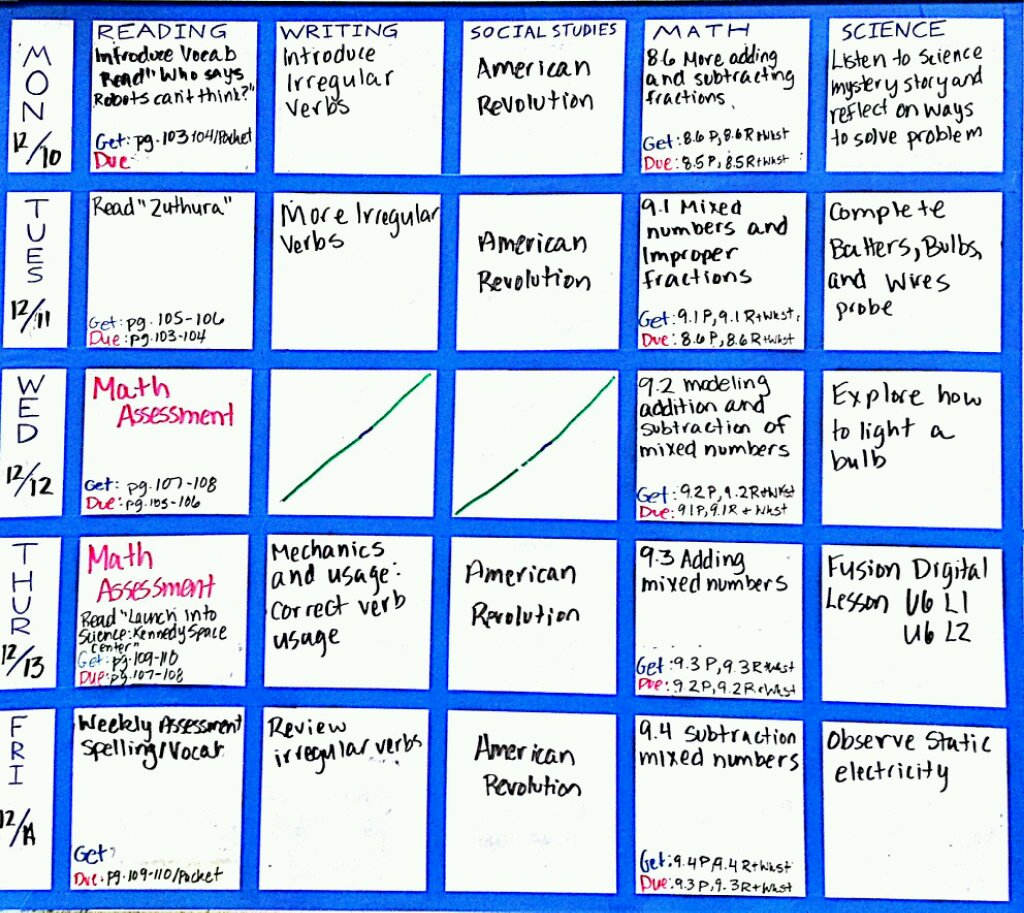 READING
WRITING
SOCIAL STUDIES
MATH
SCIENCE
MON
12/10
Introduce Vocab
Read "Who says
Robots can't think?"
Get: pg. 103-104/Pocket
Due:
Introduce
Irregular
verbs
American
Revolution
8.6 More adding
and subtracting
fractions.
Get: 8.6 P, 8.6 R+Wkst
Due: 8.5 P, 8.5 R+Wkst
Listen to science
mystery story and
reflect on ways
to solve problem
TUES
12/11
Read "Zuthura"
Get: pg. 105-106
Due: pg. 103-104
More Irregular
Verbs
American
Revolution
9.1 Mixed
numbers and
Improper
fractions
Get: 9.1 P, 9.1 R+Wkst.
Due: 8.6 P, 8.6 R+Wkst
Complete
Batters, Bulbs,
and Wires
probe
WED
12/12
Math
Assessment
Get: pg. 107-108
Due: pg. 105-106
9.2 modeling
addition and
subtraction of
mixed numbers
Get: 9.2 P, 9.2 R+Wkst
Due: 9.1 P, 9.1 R + Wkst
Explore how
to light a
bulb
THUR
12/13
Math
Assessment
Read "Launch into
Science: Kennedy Space
Center"
Get: pg. 109-110
Due: pg. 107-108
Mechanics
and usage:
correct verb
usage
American
Revolution
9.3 Adding
mixed numbers
Get: 9.3 P, 9.3 R+Wkst
Due: 9.2 P, 9.2 R+Wkst
Fusion Digital
Lesson U6 L1
U6 L2
FRI
12/14
Weekly Assessment
Spelling/Vocab
Get:
Due: pg. 109-110/Pocket
Review
irregular verbs
American
Revolution
9.4 Subtraction
mixed numbers
Get: 9.4 P, 9.4 R+Wkst
Due: 9.3 P, 9.3 R+Wkst
Observe Static
electricity